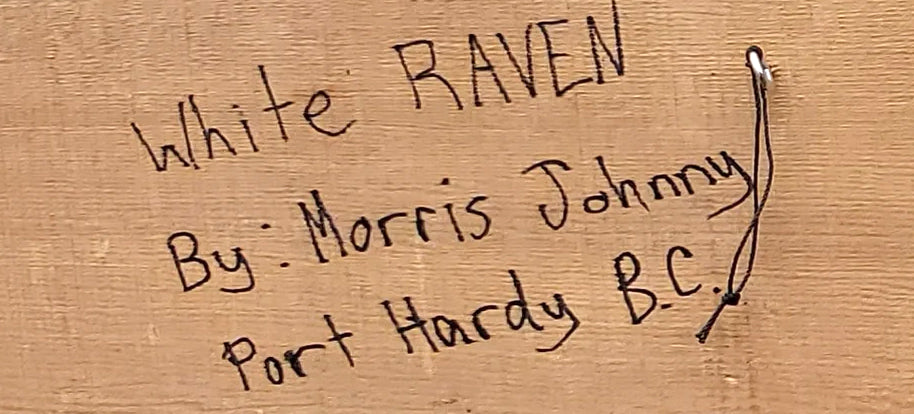 White RAVEN
By: Morris Johnny
Port Hardy B.C.